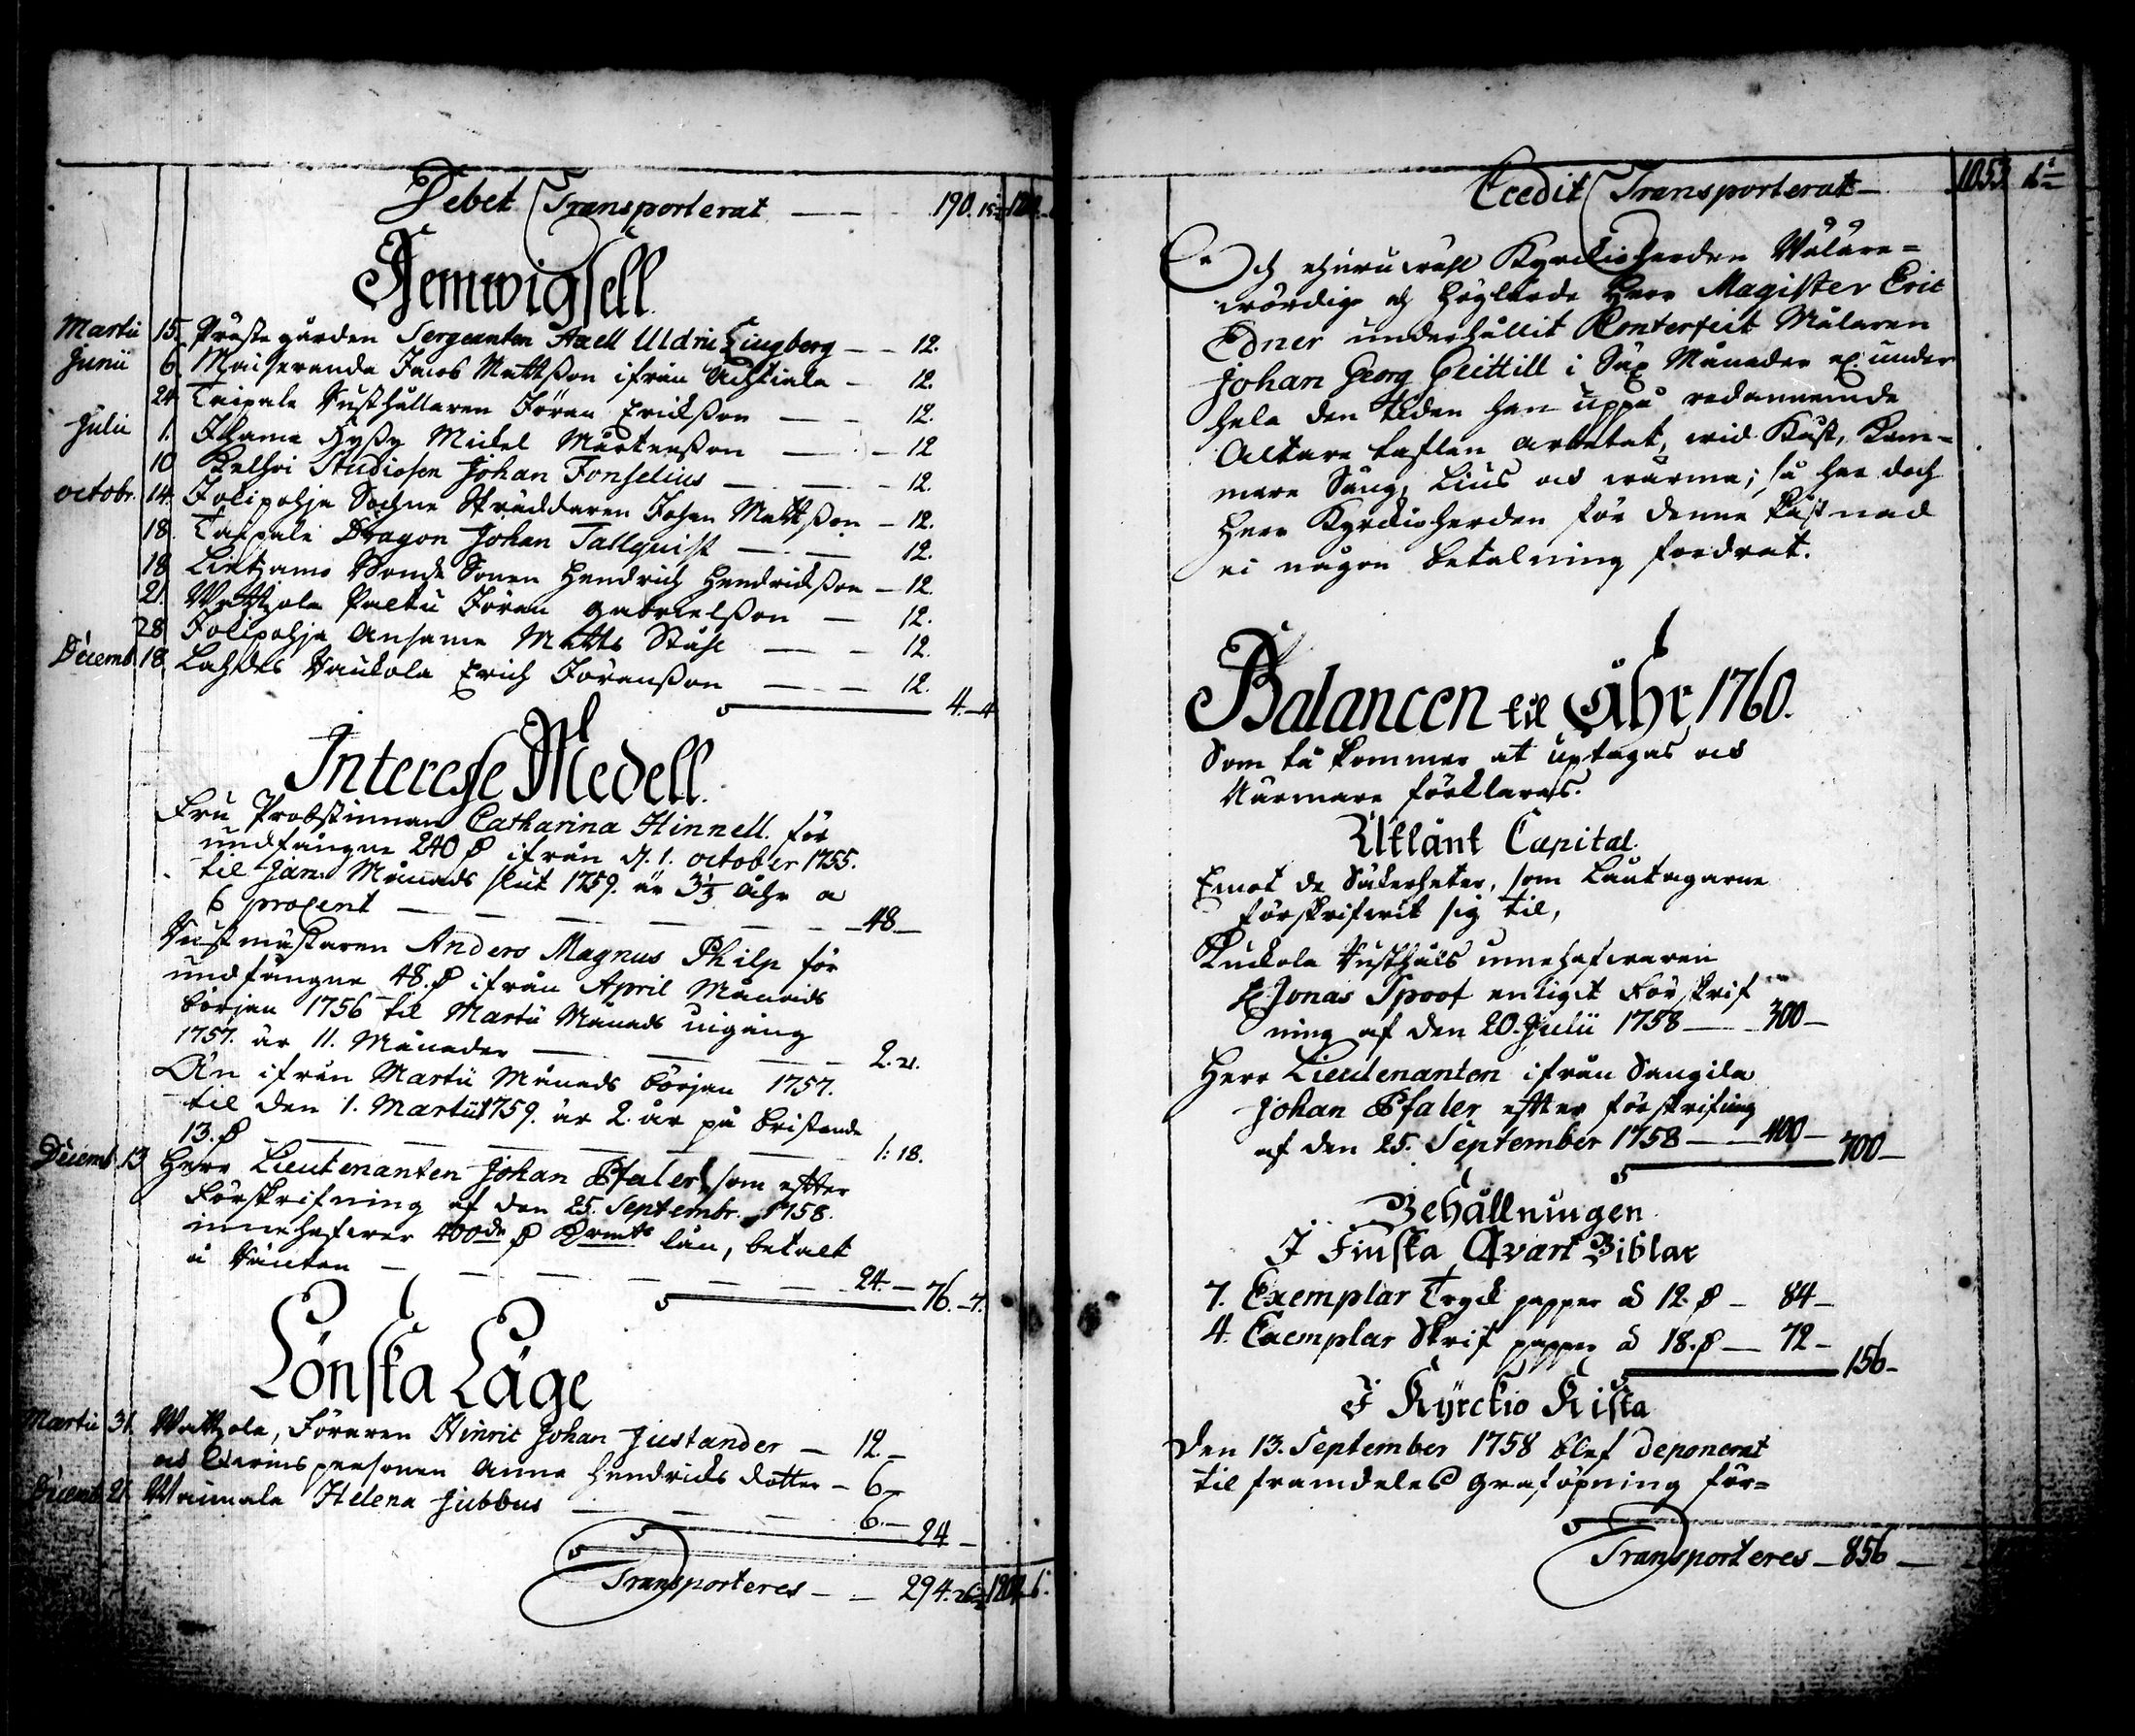 Debet Transporterat — 190. 15½
Hemwigsell.
Martii 15. Prästegården Sergeanten Axell Uldric Liugberg — 12.
Junii 6. Jacob Mattsson ifrån — 12.
24. Taipale Rusthållaren Jöran Ericksson — 12.
Julii 1. Michel Mårtensson — 12
10 Studiosen Johan Fonselius — 12.
octobr. 14. Jolipohja Sochne Skräddaren Johan Mattsson — 12.
18. Taipale Dragon Johan Tallquist — 12.
18 Bonde Sonen Hendrich Hendricksson — 12.
21. Jöran Gabrielsson — 12.
28 Jolipohja Matts Ståhl — 12.
Decemb. 18. Laukola Erich Jöransson — 12.
4.—4
Interesse Medell.
Fru Probstinnan Catharina Hinnell. för
undfångne 240 ifrån d. 1. october 1755.
til Jan. Månads slut 1759. är 3⅓ åhr a
6 procent — 48—
Rustmästaren Anders Magnus Philp för
undfångne 48. ifrån April Månads
början 1756 til Martii Månads utgång
1757. är 11. Månader — 2. 21.
Än ifrån Martii Månads början 1757.
til den 1. Martii 1759. är 2. år på bristande
13. — 1: 18.
Decemb. 13 Herr Lieutenanten Johan Pfaler som efter
Förskrifning af den 25. Septembr. 1758.
innehafwer 400de lån, betalt
å Räntan — 24.— 76.—7.
Lönska Läge
Martii 31. Föraren Hinric Johan Justander — 12—
Anna Hendricks dotter — 6—
Decemb. 21. Helena Jubbus — 6.—24—
Transporteres — 294. 26½ 1204 6.
Credit Transporterat — 1053 16½
Och ehuruwähl Kyrckioherden Wälärewördige
och Höglärde Herr Magister Eric
Edner underhållit Conterfeit Målaren
Johan Georg Geittill i Sex Månader under
hela den tiden han uppå redannemde
Altare taflan arbetat, wid Kost, Kammare
Säng, Lius och wärma; så har doch
Herr Kyrckioherden för denne kåstnad
ei någon betalning fordrat.
Balancen til Åhr 1760.
Som då kommer at uptagas och
Närmare förklaras.
Utlånt Capital.
Emot de Säkerheter, som Låntagarne
förskrifwit sig til,
Kuckola Rusthåls innehafwaren
Jonas Spoof enligit Förskrif
ning af den 20. Julii 1758 — 300—
Herr Lieutenanten ifrån Sangila
Johan Pfaler efter förskrifning
af den 25. September 1758 — 400— 700—
Behållningen
I Finska Qvart Biblar
7. Exemplar Tryck papper á 12. — 84—
4. Exemplar Skrif papper á 18. — 72— 156—
I Kyrckio Kista
Den 13. September 1758 blef deponerat
til framdeles Graföpning för=
Transporteres — 856 —